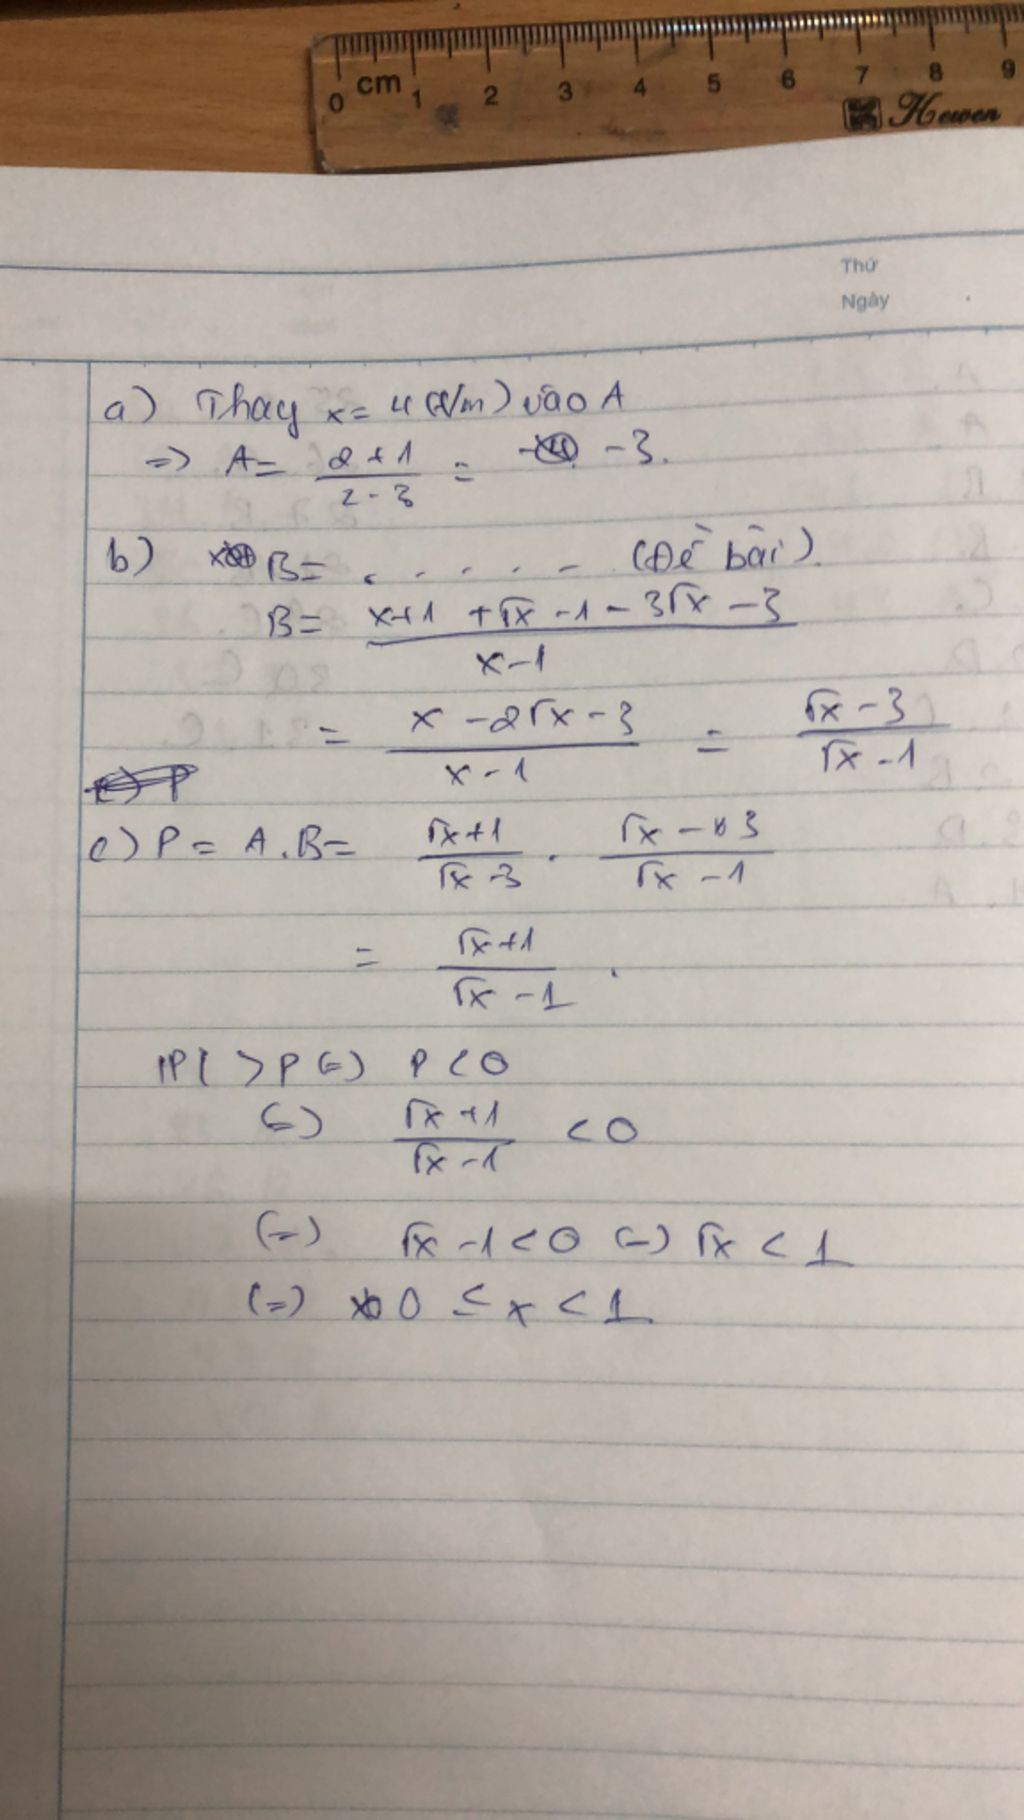 0 cm 1 2 3 4 5 6 7 8 9
Hewen
Thứ
Ngày
a) Thay x = 4 (t/m) vào A
=> A = (2+1)/(2-3) = -3.
b) B = . . . . . - (Đề bài).
B = (x+1 + √x - 1 - 3√x - 3)/(x-1)
= (x - 2√x - 3)/(x-1) = (√x - 3)/(√x - 1)
c) P = A.B = (√x+1)/(√x-3) . (√x - 3)/(√x - 1)
= (√x+1)/(√x - 1) .
|P| > P (=) P < 0
(=) (√x+1)/(√x-1) < 0
(=) √x - 1 < 0 (=) √x < 1
(=) 0 ≤ x < 1